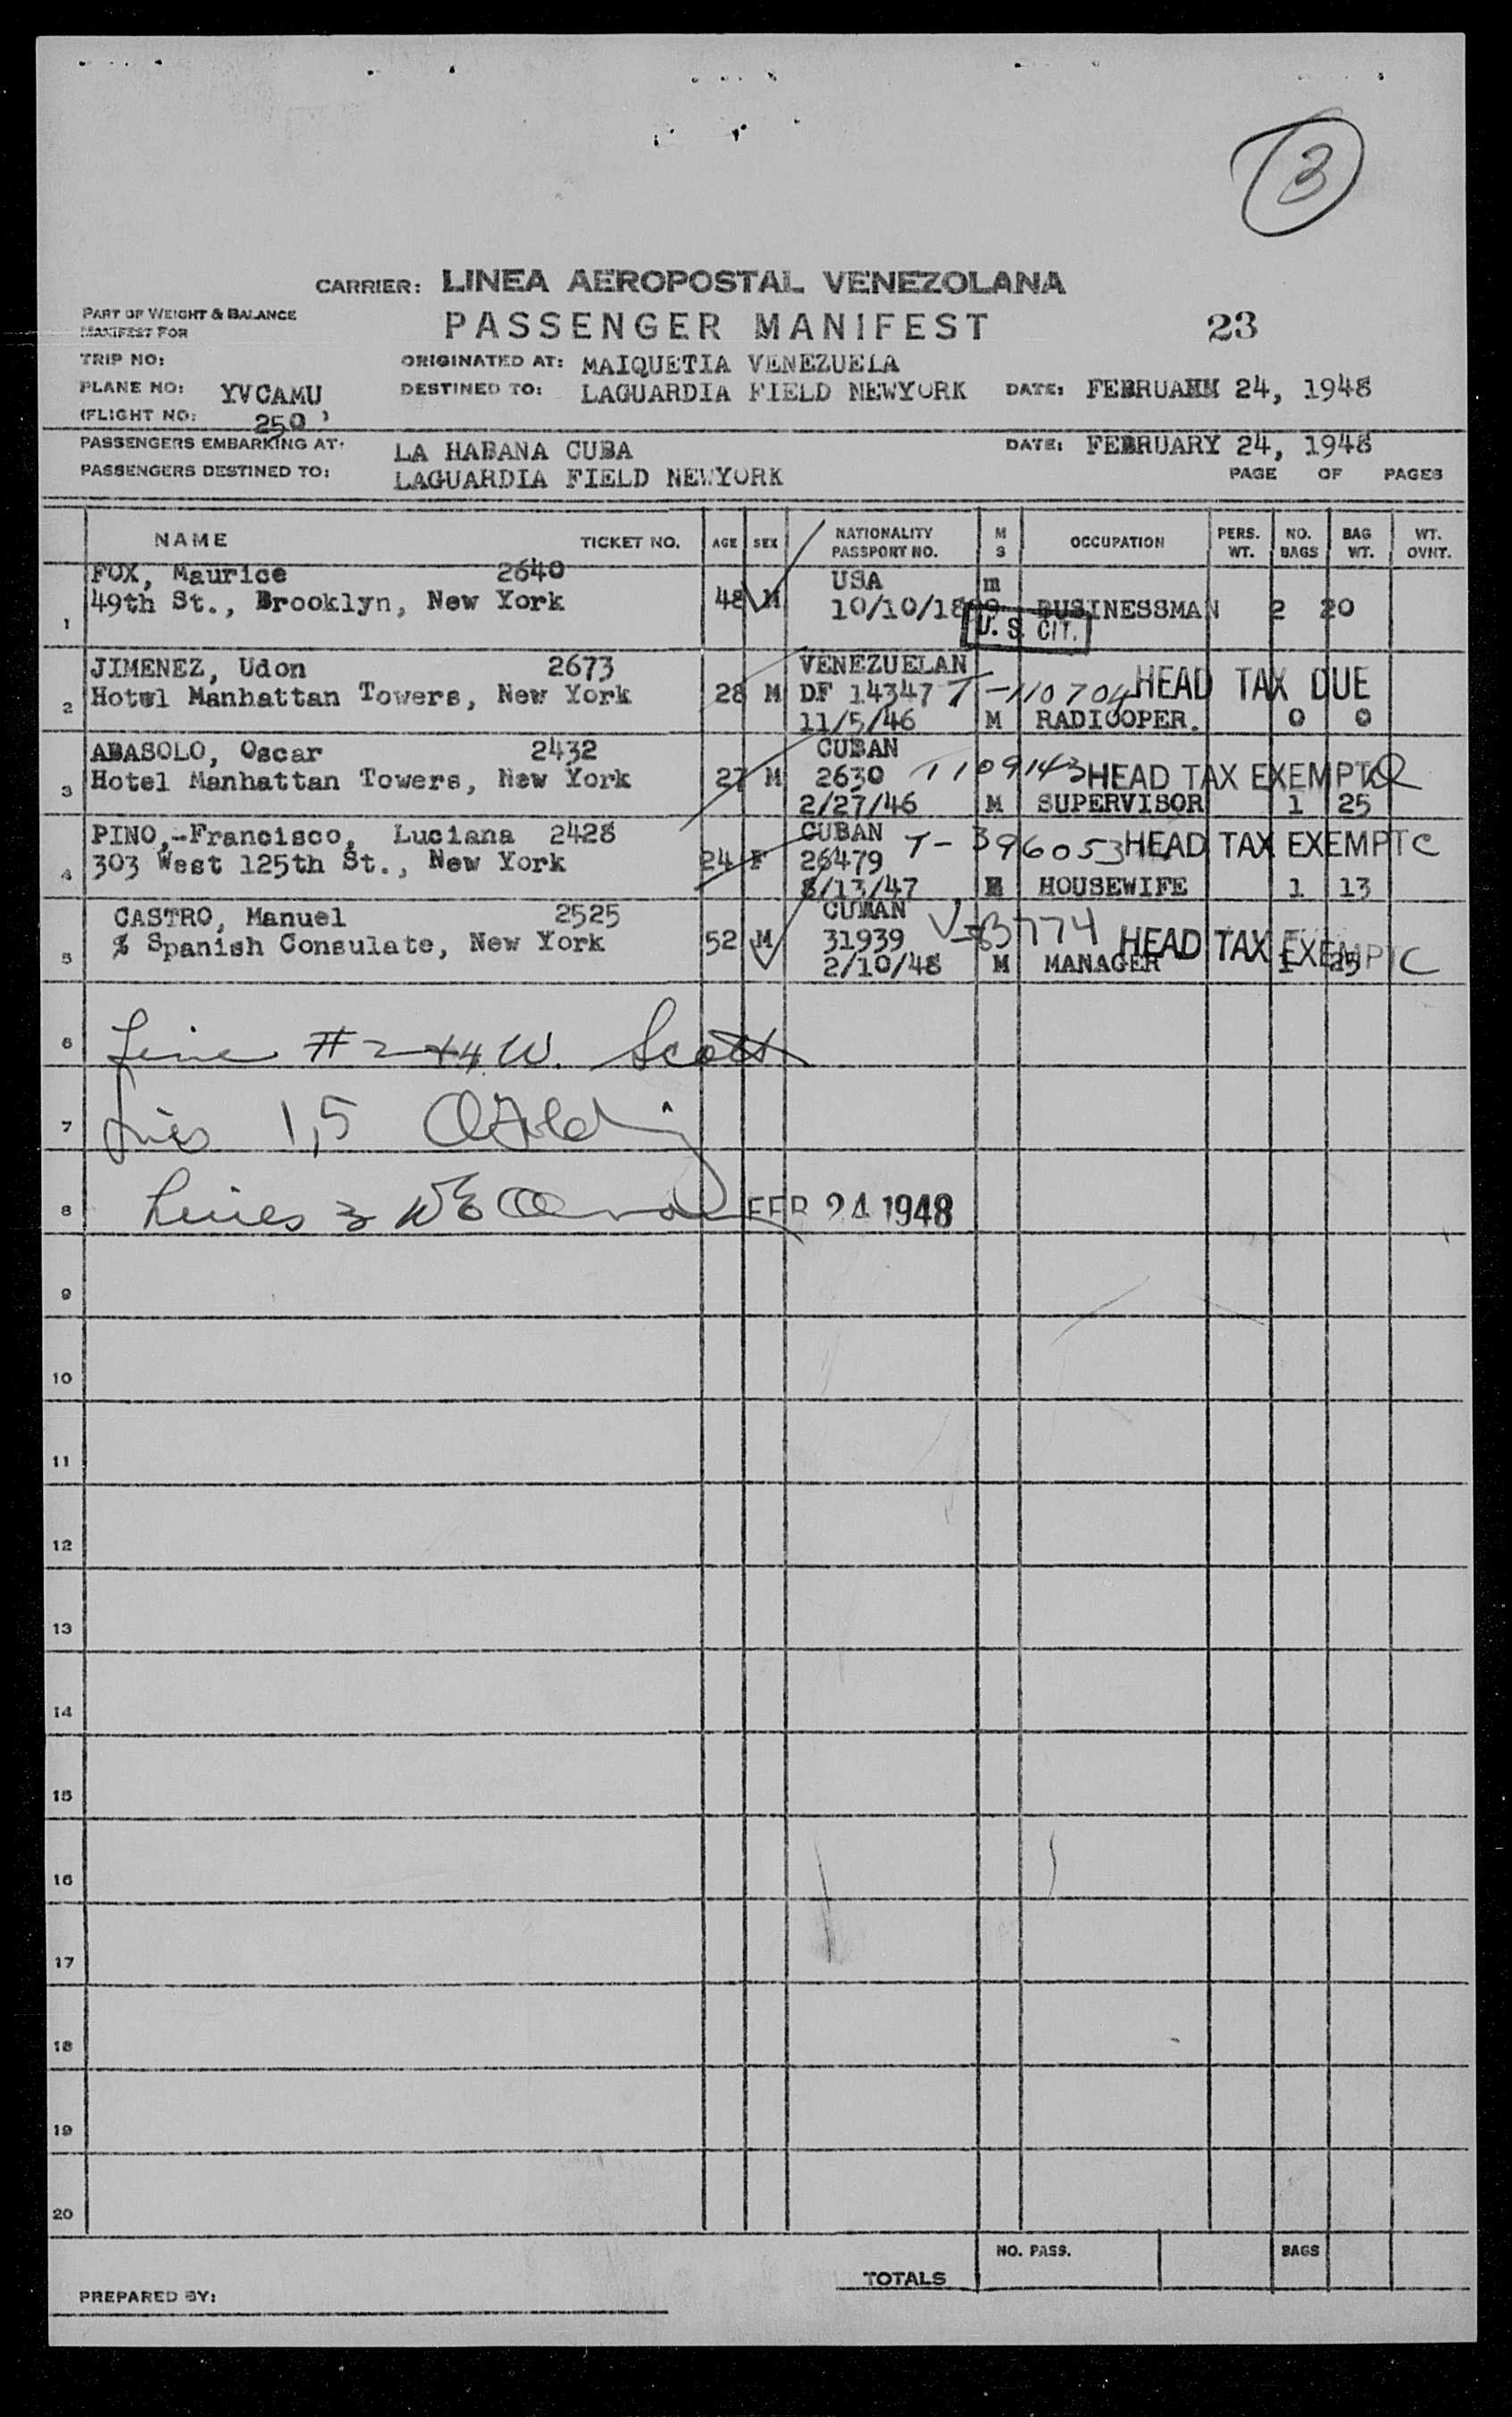 3
CARRIER: LINEA AEROPOSTAL VENEZOLANA
PART OF WEIGHT & BALANCE
MANIFEST FOR
PASSENGER MANIFEST 23
TRIP NO: ORIGINATED AT: MAIQUETIA VENEZUELA
PLANE NO: YVCAMU DESTINED TO: LAGUARDIA FIELD NEWYORK DATE: FEBRUA 24, 1948
(FLIGHT NO: 250
PASSENGERS EMBARKING AT: LA HABANA CUBA DATE: FEBRUARY 24, 1948
PASSENGERS DESTINED TO: LAGUARDIA FIELD NEWYORK PAGE OF PAGES
NAME TICKET NO. AGE SEX NATIONALITY PASSPORT NO. M S OCCUPATION PERS. WT. NO. BAGS BAG WT. WT. OVNT.
FOX, Maurice 2640 USA m
1 49th St., Brooklyn, New York 48 M 10/10/1899 BUSINESSMAN 2 20
U. S. CIT.
JIMENEZ, Udon 2673 VENEZUELAN
2 Hotwl Manhattan Towers, New York 28 M DF 14347 T-110704 HEAD TAX DUE
11/5/46 M RADIOOPER. 0 0
ABASOLO, Oscar 2432 CUBAN
3 Hotel Manhattan Towers, New York 27 M 2630 T109143 HEAD TAX EXEMPT
2/27/46 M SUPERVISOR 1 25
PINO,-Francisco, Luciana 2428 CUBAN T-396053 HEAD TAX EXEMPT C
4 303 West 125th St., New York 24 F 26479
8/13/47 HOUSEWIFE 1 13
CASTRO, Manuel 2525 CUMAN
5 % Spanish Consulate, New York 52 M 31939 HEAD TAX EXEMPT C
2/10/48 M MANAGER 1 25
6 Line #2+4 W. Scott
7 Lines 1,5
8 Lines 3 FEB 24 1948
9
10
11
12
13
14
15
16
17
18
19
20
NO. PASS. BAGS
TOTALS
PREPARED BY: